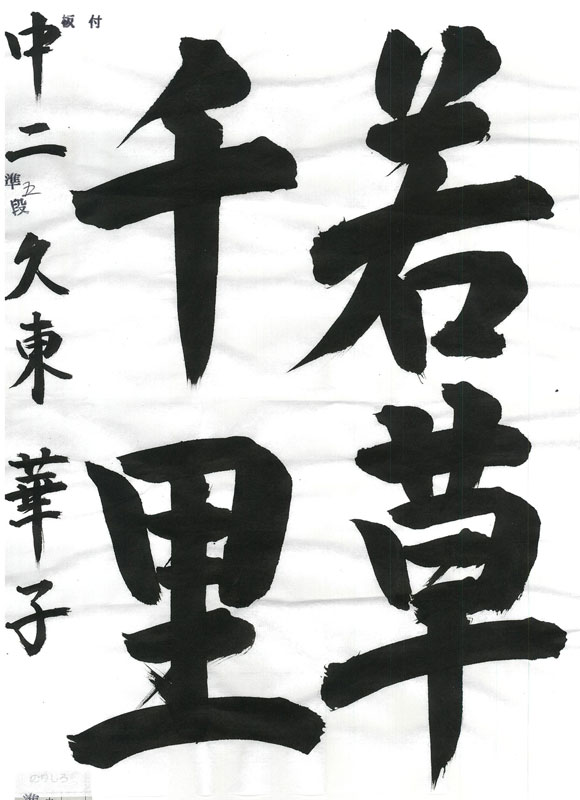 若草
千里
板付
中二 久東 華子
準五段